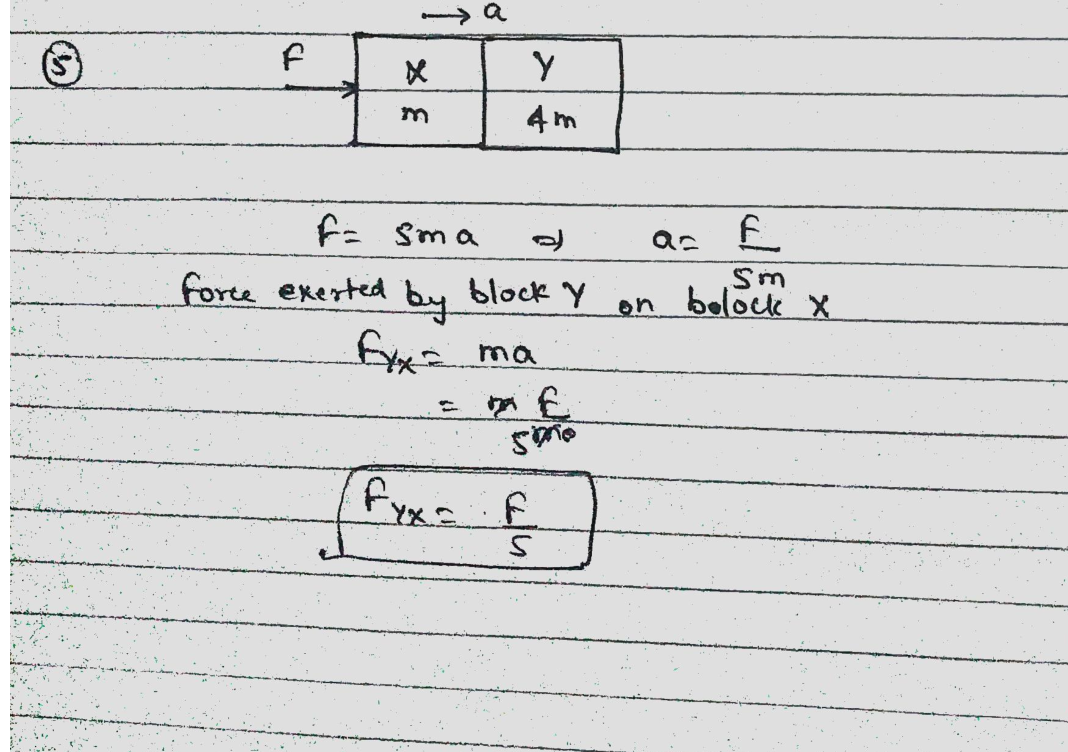 → a
⑤ F → X Y
m 4m
F = 5ma ⇒ a = F/5m
force exerted by block Y on bolock X
FYX = ma
= m F/5m
FYX = F/5